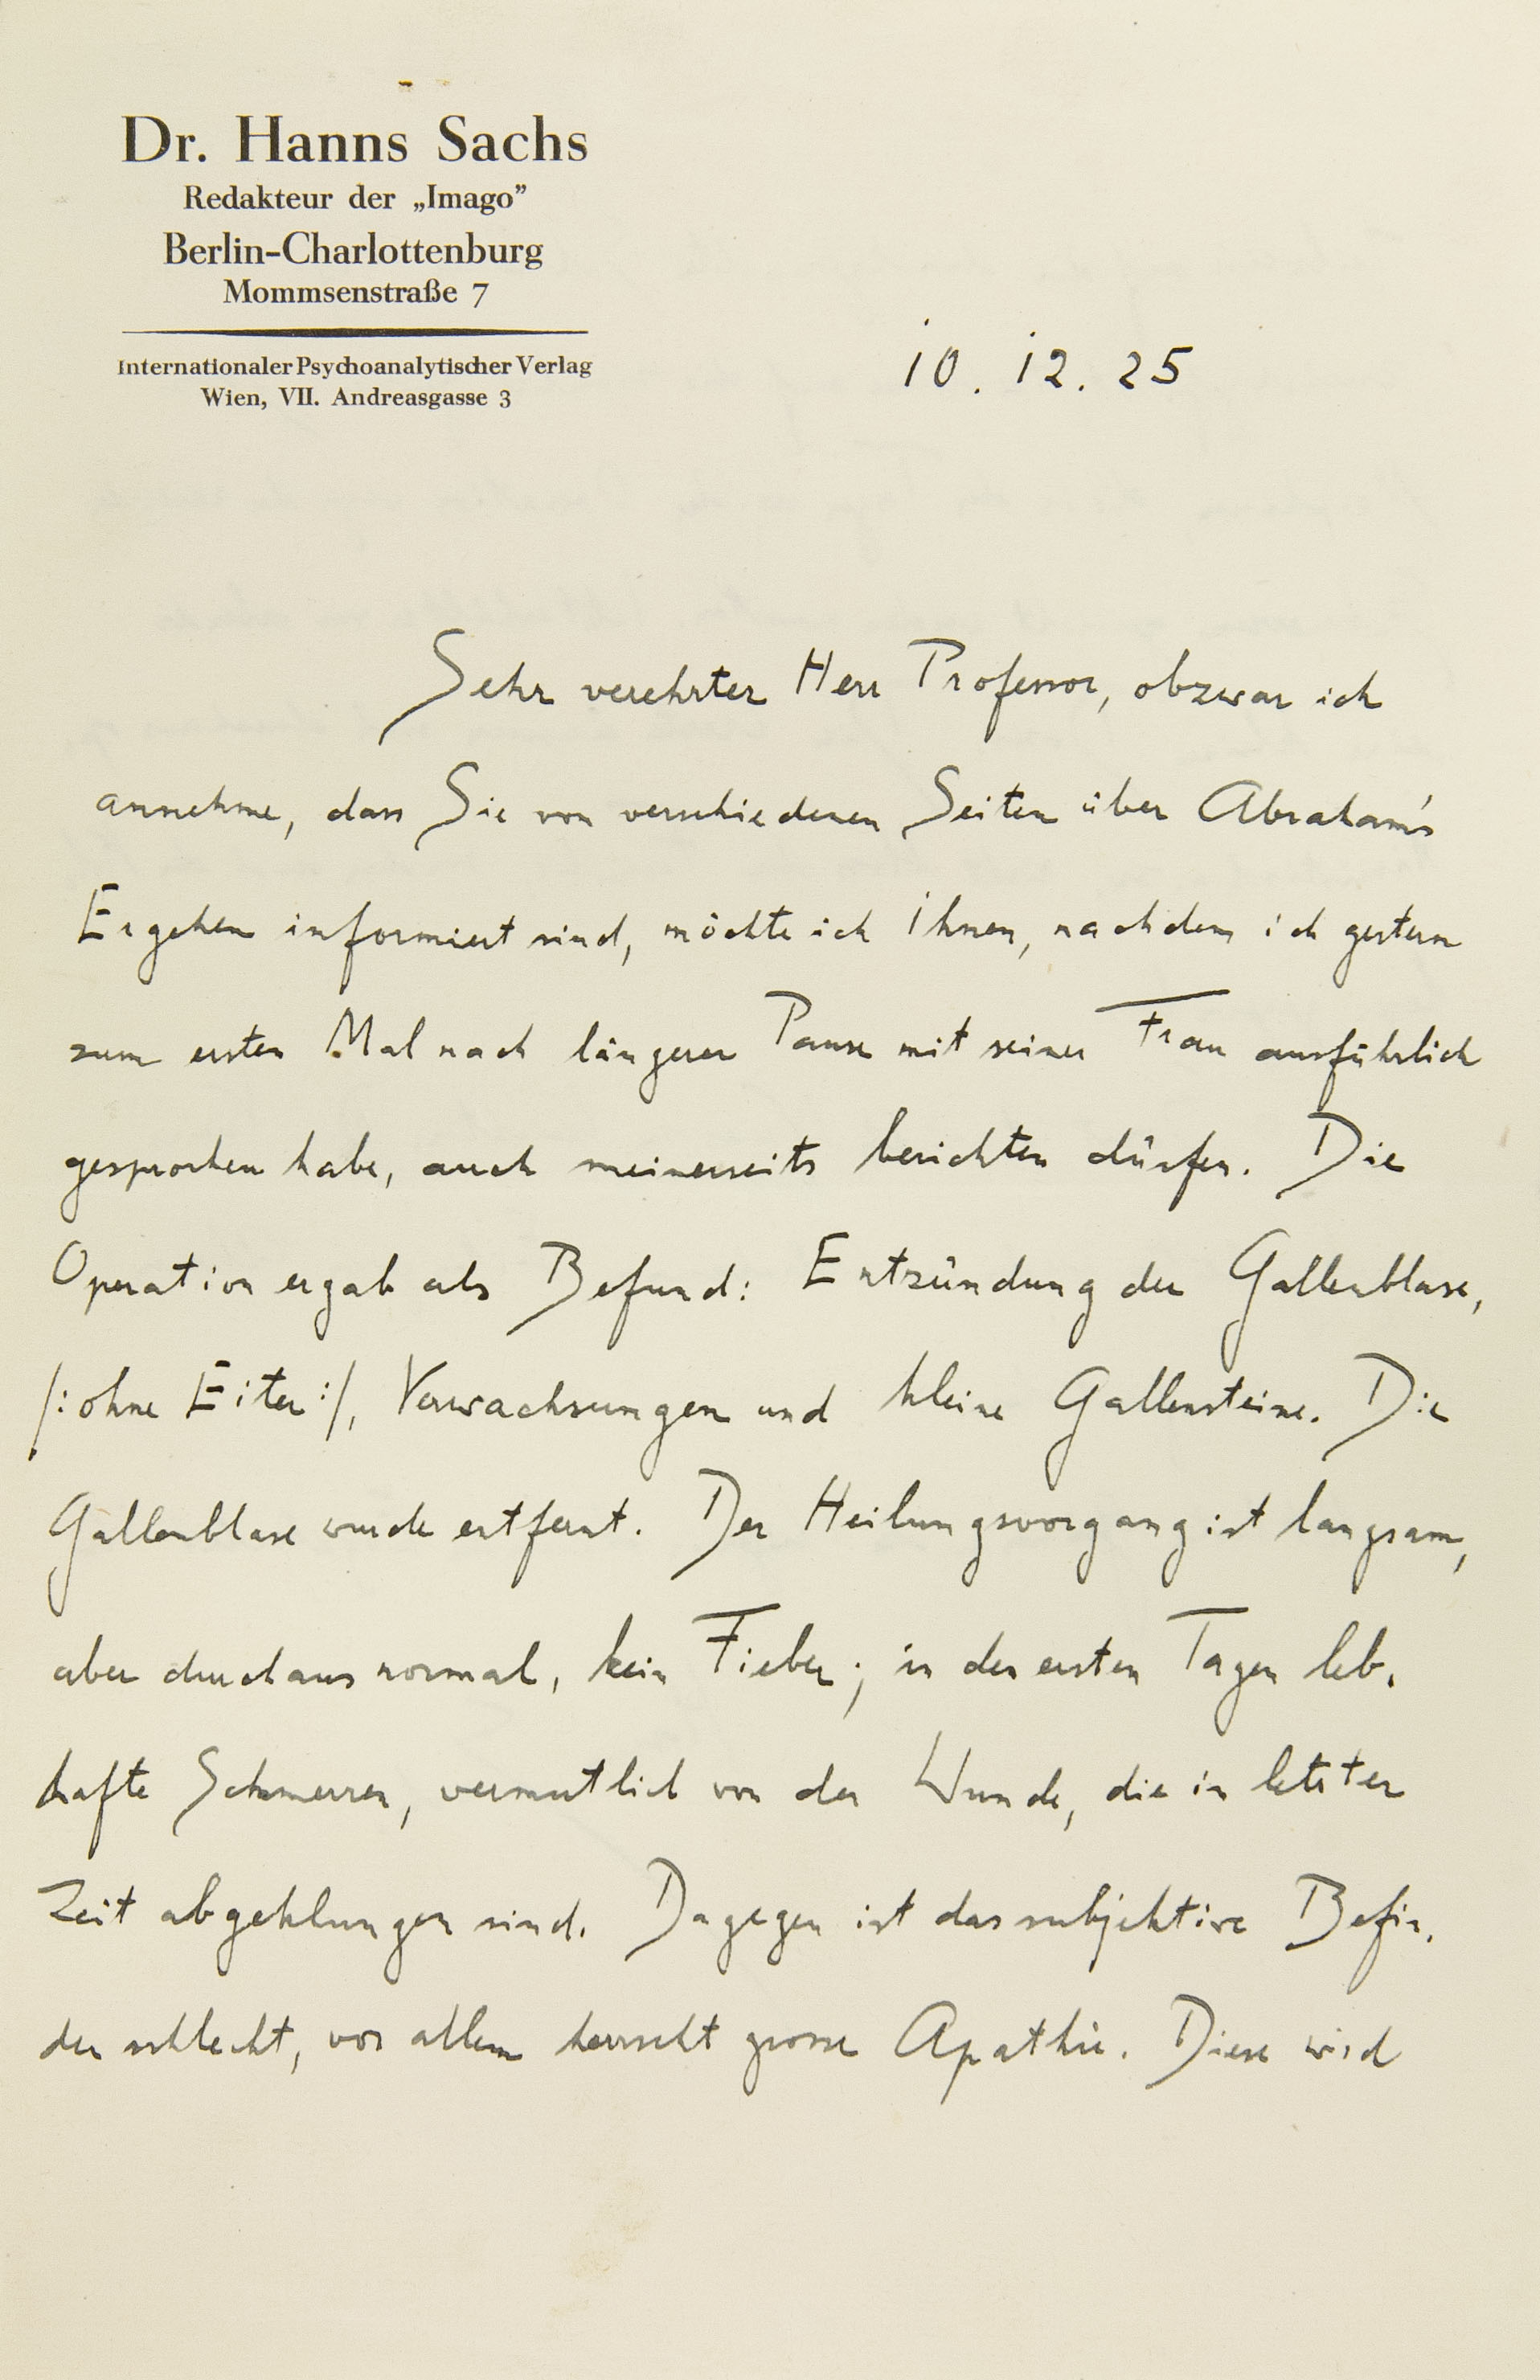 Dr. Hanns Sachs
Redakteur der „Imago”
Berlin-Charlottenburg
Mommsenstraße 7
Internationaler Psychoanalytischer Verlag
Wien, VII. Andreasgasse 3
10. 12. 25
Sehr verehrter Herr Professor, obzwar ich
annehme, dass Sie von verschiedenen Seiten über Abraham's
Ergehen informiert sind, möchte ich Ihnen, nachdem ich gestern
zum ersten Mal nach längerer Pause mit seiner Frau ausführlich
gesprochen habe, auch meinerseits berichten dürfen. Die
Operation ergab als Befund: Entzündung der Gallenblase,
/: ohne Eiter :/, Verwachsungen und kleine Gallensteine. Die
Gallenblase wurde entfernt. Der Heilungsvorgang ist langsam,
aber durchaus normal, kein Fieber; in den ersten Tagen leb-
hafte Schmerzen, vermutlich von der Wunde, die in letzter
Zeit abgeklungen sind. Dagegen ist das subjektive Befin-
den schlecht, vor allem herrscht grosse Apathie. Diese wird